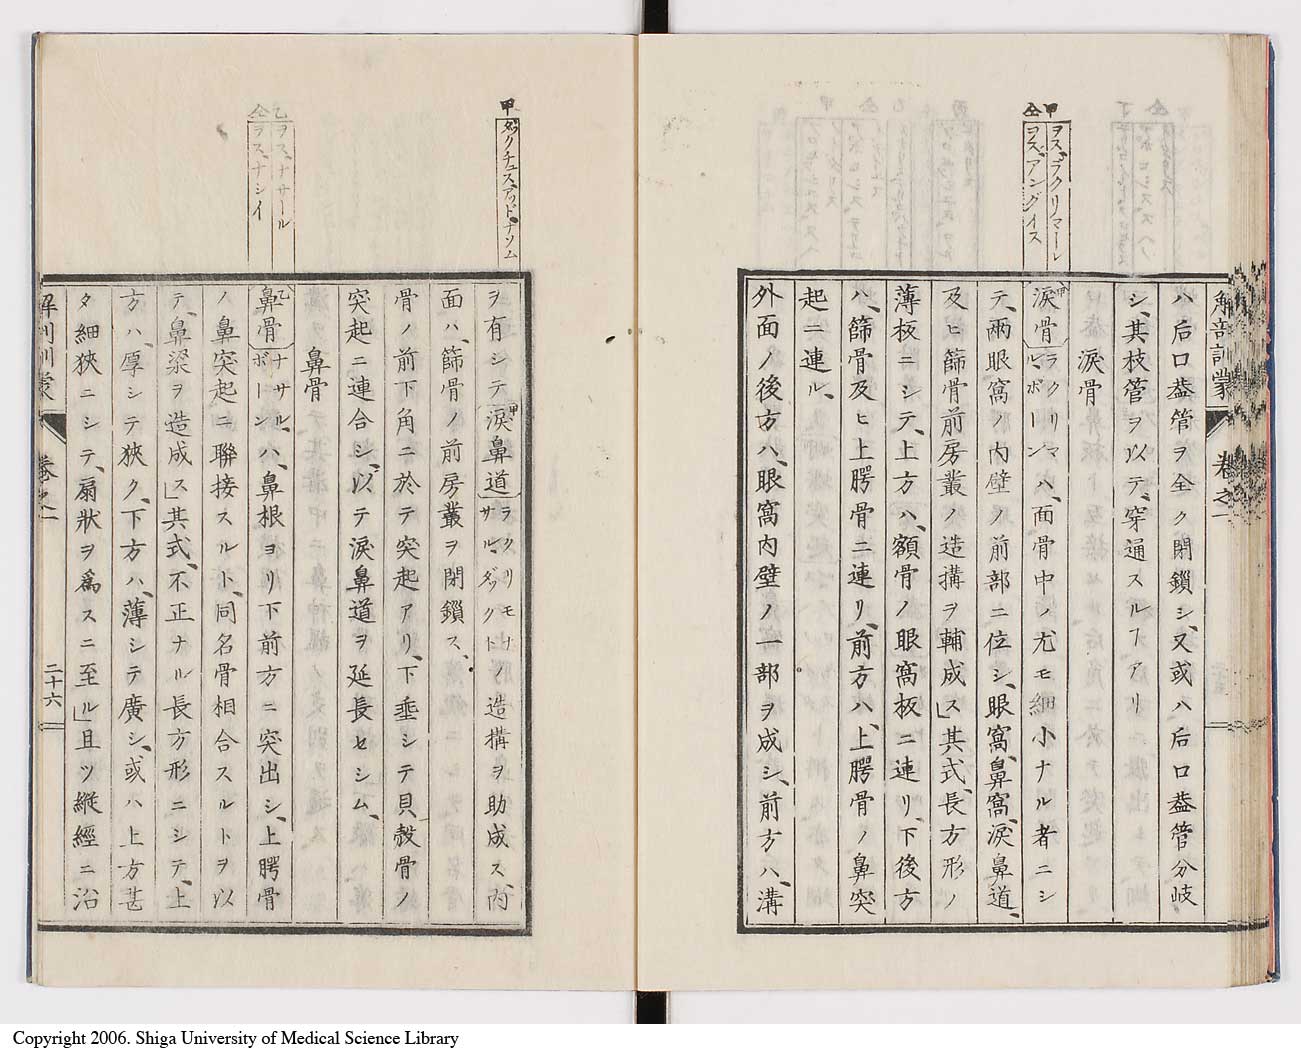 甲 ヲス、ラクリマーレ
仝 ヲス、アングイス
解剖訓蒙 卷之一
ハ后口蓋管ヲ全ク閉鎖シ、又或ハ后口蓋管分岐
シ、其枝管ヲ以テ、穿通スルヿアリ
涙骨
涙骨 甲 ラクリマール、ボーン ハ、面骨中ノ尤モ細小ナル者ニシ
テ、兩眼窩ノ内壁ノ前部ニ位シ、眼窩、鼻窩、涙鼻道、
及ヒ篩骨前房叢ノ造搆ヲ輔成ス」其式、長方形ノ
薄板ニシテ、上方ハ、額骨ノ眼窩板ニ連リ、下後方
ハ、篩骨及ヒ上腭骨ニ連リ、前方ハ、上腭骨ノ鼻突
起ニ連ル、
外面ノ後方ハ、眼窩内壁ノ一部ヲ成シ、前方ハ、溝
甲 ダクチュス、アッド、ナソム
乙 ヲス、ナサール
仝 ヲス、ナシイ
ヲ有シテ涙鼻道 甲 ラクリモナサル、ダクト ノ造搆ヲ助成ス、内
面ハ、篩骨ノ前房叢ヲ閉鎖ス、
骨ノ前下角ニ於テ突起アリ、下垂シテ貝殼骨ノ
突起ニ連合シ、以テ涙鼻道ヲ延長セシム、
鼻骨
鼻骨 乙 ナサル、ボーン ハ、鼻根ヨリ下前方ニ突出シ、上腭骨
ノ鼻突起ニ聯接スルト、同名骨相合スルトヲ以
テ、鼻梁ヲ造成ス」其式、不正ナル長方形ニシテ、上
方ハ、厚シテ狹ク、下方ハ、薄シテ廣シ、或ハ上方甚
タ細狹ニシテ、扇狀ヲ爲スニ至ル」且ツ縱經ニ沿
解剖訓蒙 卷之一 二十六